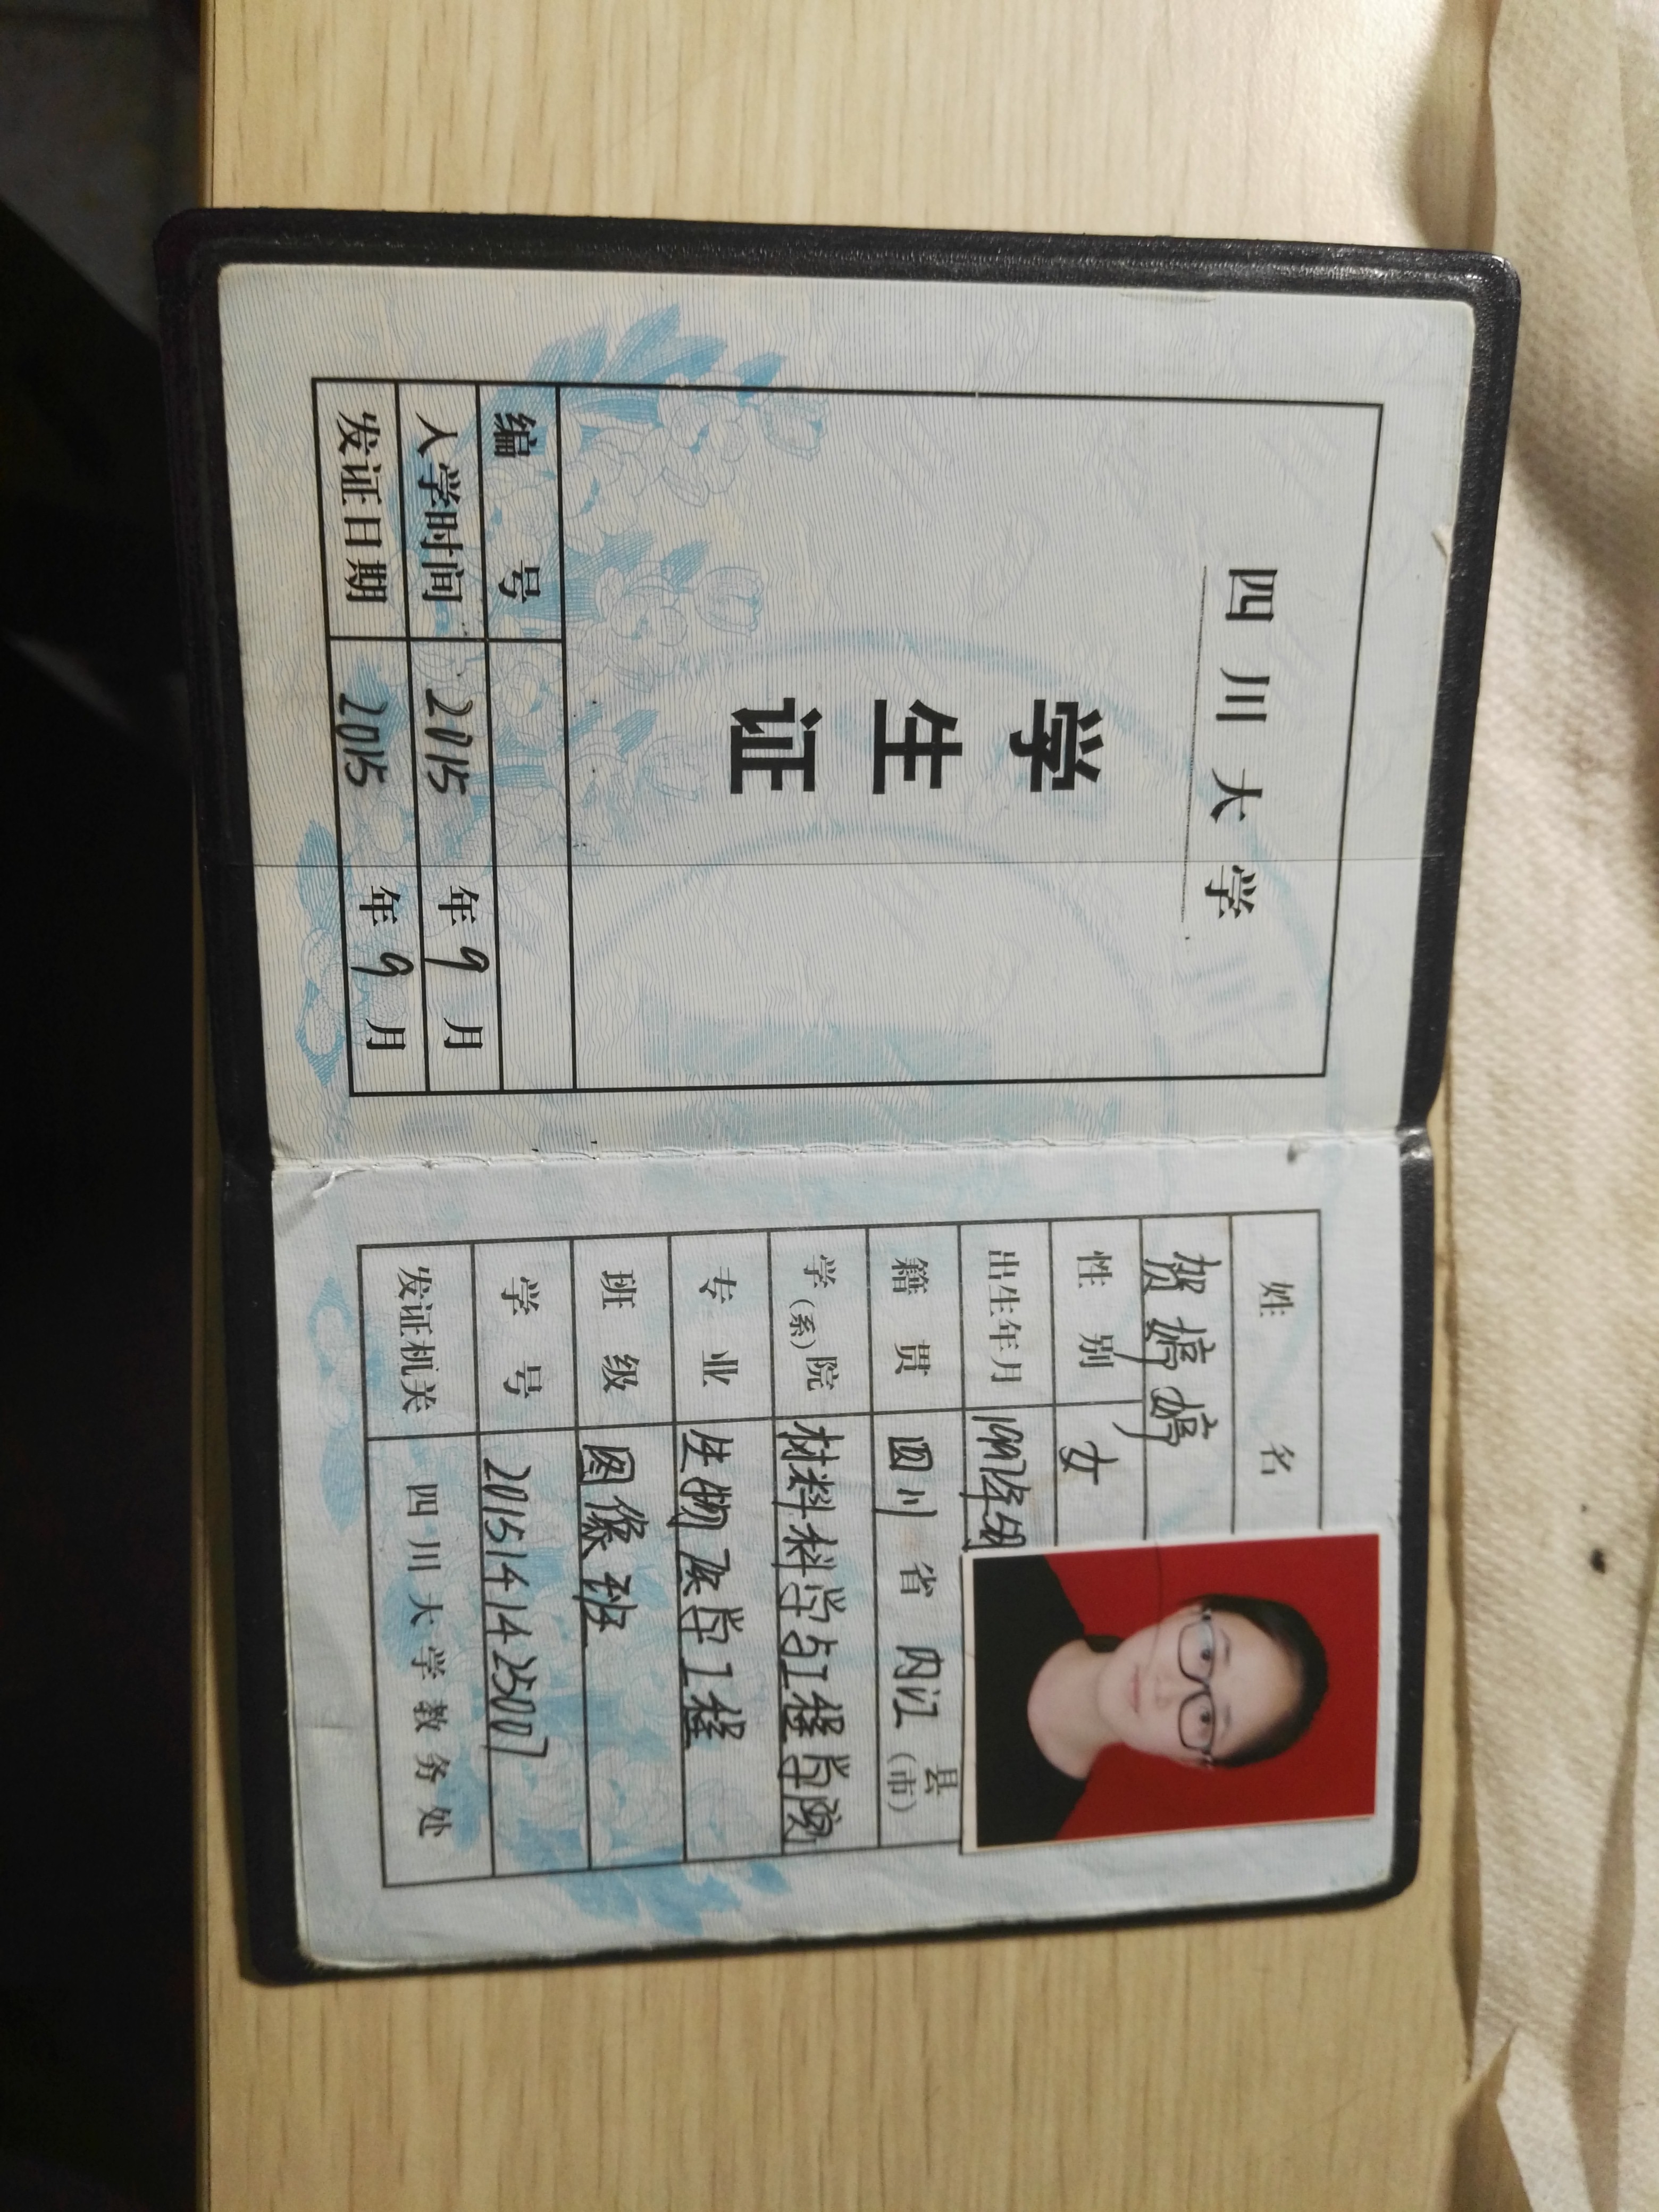 四川大学
学生证
编号
入学时间 2015年9月
发证日期 2015年9月
姓名
贺婷婷
性别 女
出生年月 1997年
籍贯 四川省内江县(市)
学(系)院 材料科学与工程学院
专业 生物医学工程
班级 图像班
学号 2015141425007
发证机关 四川大学教务处